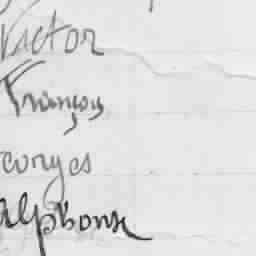 Victor
François
eorges
Alphonse